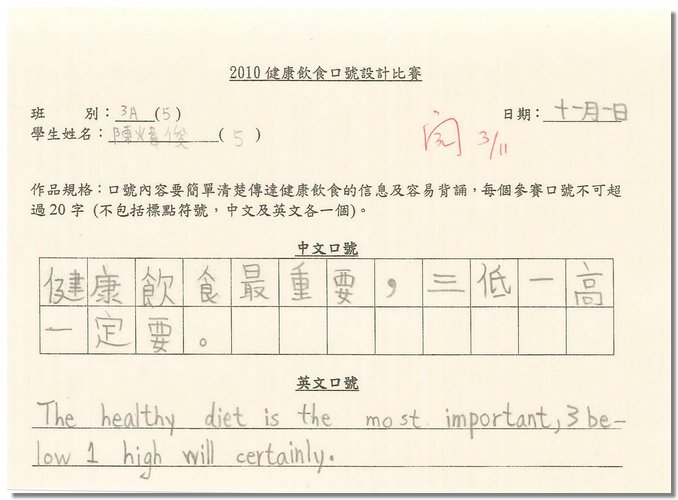 2010 健康飲食口號設計比賽
班 別：3A (5)
日期：十一月一日
學生姓名：陳煒俊 (5)
閱 3/11
作品規格：口號內容要簡單清楚傳達健康飲食的信息及容易背誦，每個參賽口號不可超
過20字 (不包括標點符號，中文及英文各一個)。
中文口號
健康飲食最重要，三低一高
一定要。
英文口號
The healthy diet is the most important, 3 be-
low 1 high will certainly.